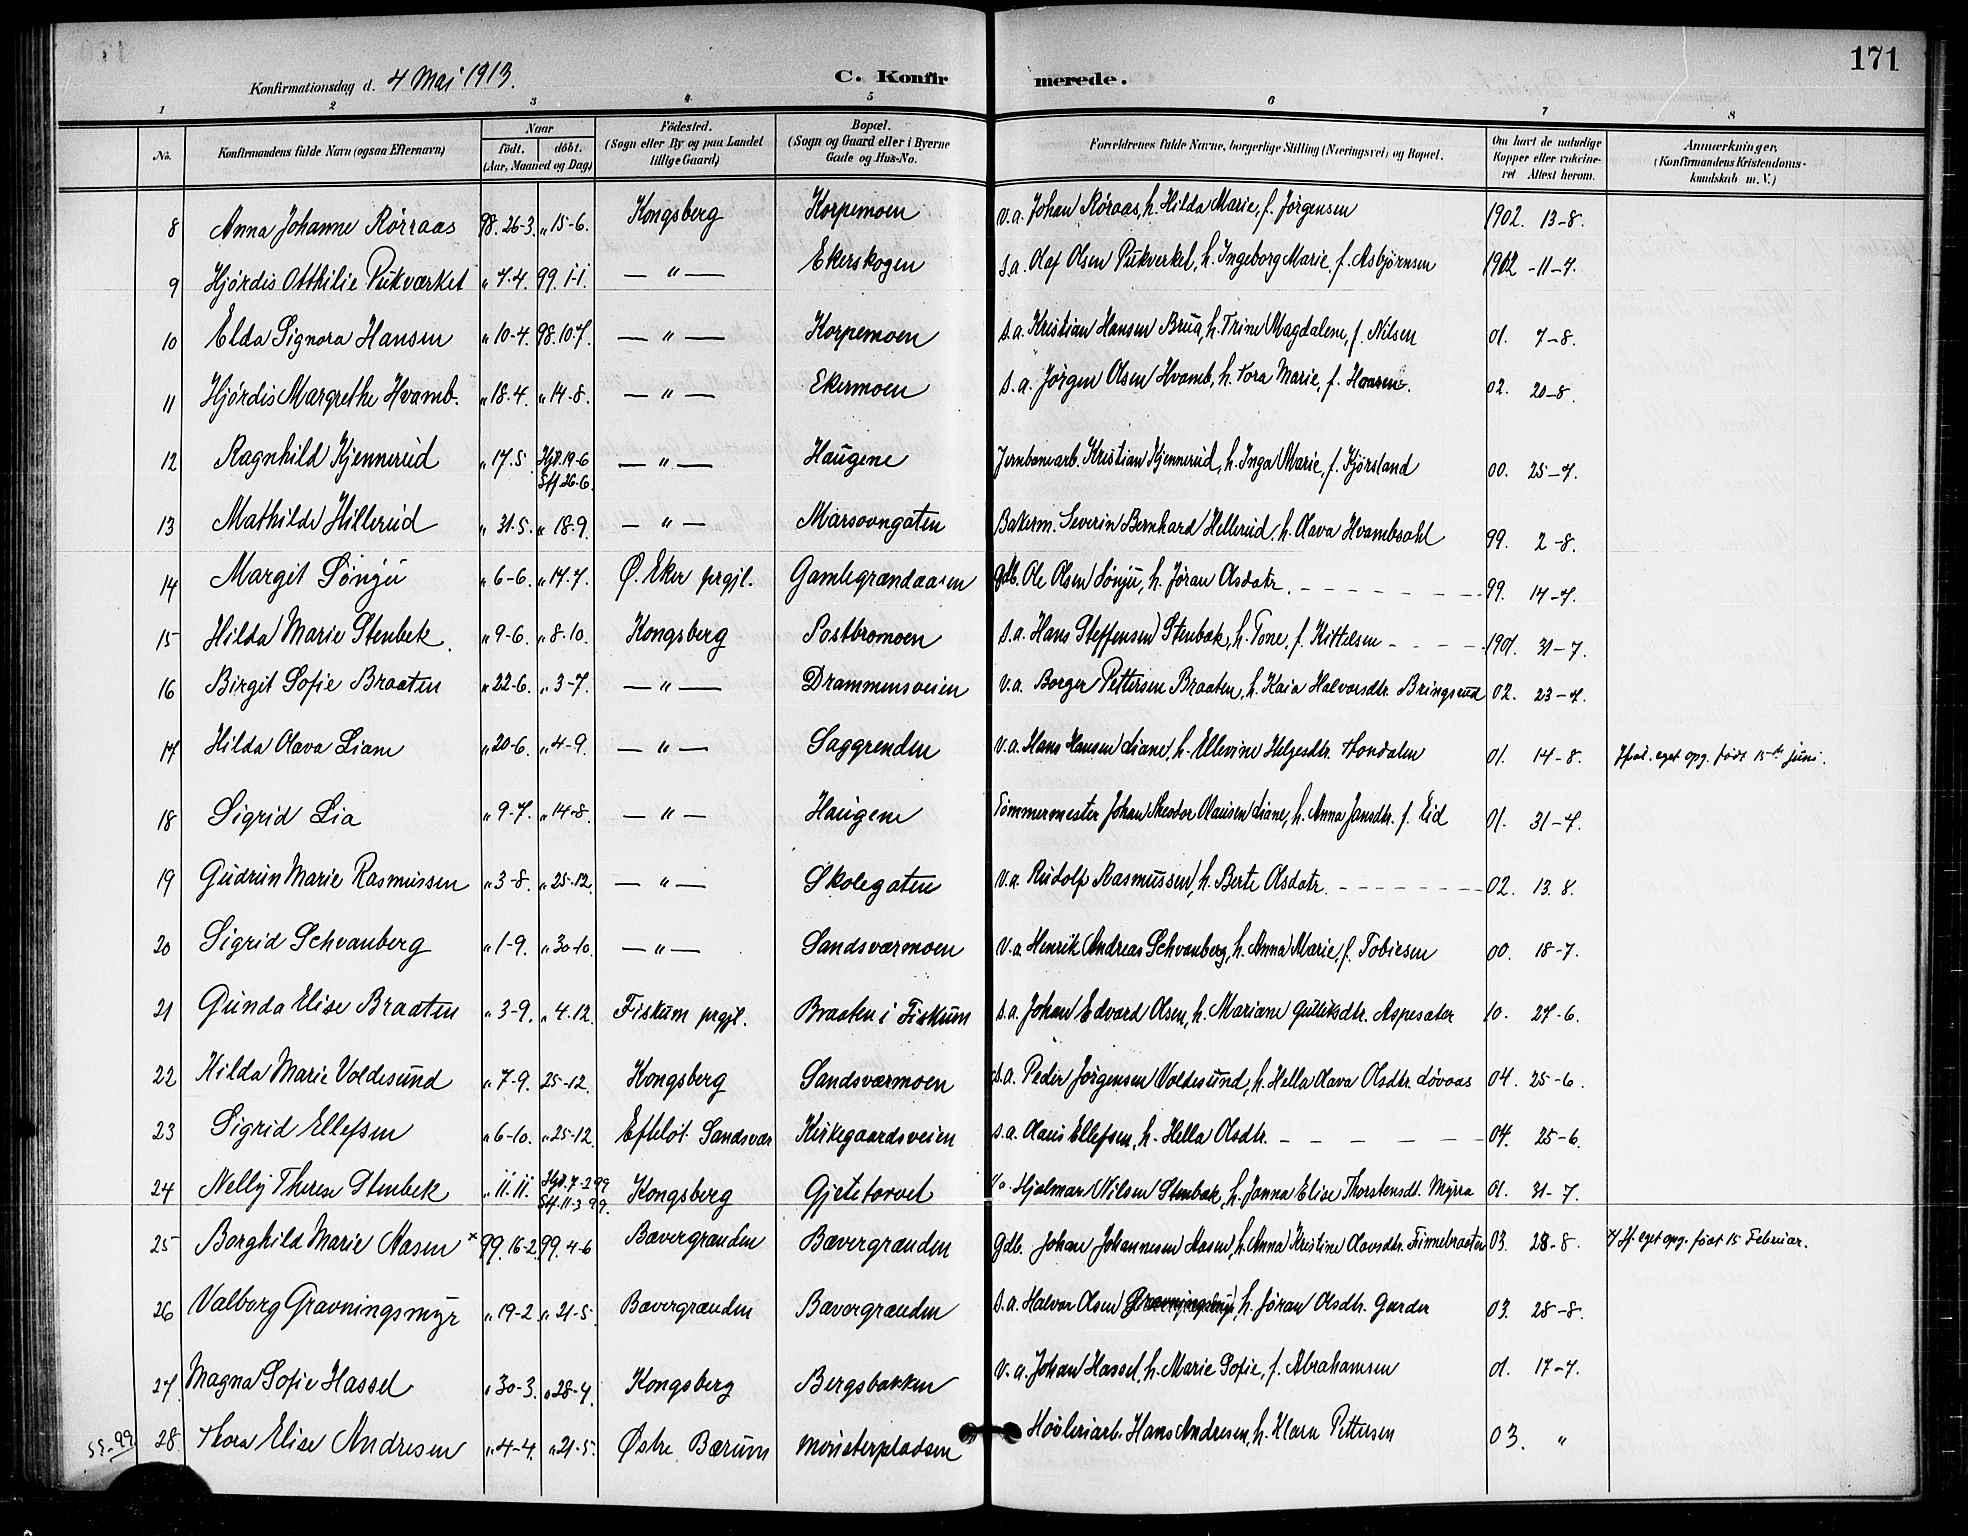 171
Konfirmationsdag d. 4 Mai 1913.
C. Konfirmerede.
1 2 3 4 5 6 7 8
No. Konfirmandens fulde Navn (ogsaa Efternavn) Naar født. døbt. (Aar, Maaned og Dag) Fødested. (Sogn eller By og paa Landet tillige Gaard) Bopæl. (Sogn og Gaard eller i Byerne Gade og Hus-No. Forældrenes fulde Navne, borgerlige Stilling (Næringsvei) og Bopæl. Om havt de naturlige Kopper eller vakcineret Attest herom. Anmærkninger, (Konfirmandens Kristendomskundskab m. V.)
8 Anna Johanne Rørraas 98. 26-3. „ 15-6. Kongsberg Korpemoen v.a. Johan Røraas, h. Hilda Marie, f. Jørgensen 1902. 13-8.
9 Hjørdis Otthilie Pukværket „ 7.4. 99. 1-1. — „ — Ekerskogen s.a. Olaf Olsen Pukverket, h. Ingeborg Marie, f. Asbjørnsen 1902 -11-7.
10 Elda Signora Hansen „ 10-4. 98. 10-7. — „ — Korpemoen s.a. Kristian Hansen Brua, h. Trine Magdalene, f. Nilsen 01. 7-8.
11 Hjørdis Margrethe Hvamb. „ 18.4. „ 14-8. — „ — Ekermoen s.a. Jørgen Olsen Hvamb, h. Tora Marie, f. 02. 20-8.
12 Ragnhild Kjennerud „ 17.5. Hjd. 19-6 Stf. 26-6. — „ — Haugene Jernbanearb. Kristian Kjennerud, h. Inga Marie, f. Kjørsland 00. 25-7.
13 Mathilde Hillerud „ 31-5. „ 18-9. — „ — Marsovngaten Bakerm. Severin Bernhard Hellerud, h. Olava Hvambsahl 99. 2-8.
14 Margit Sønju „ 6-6. „ 17.7. Ø. Eker prgjl. Gamlegrændaasen gdb. Ole Olsen Sønju, h. Jøran Olsdatr. 99. 14-7.
15 Hilda Marie Stenbek. „ 9-6. „ 8-10. Kongsberg Postbromoen s.a. Hans Steffensen Stenbæk, h. Tone, f. Kittelsen 1901. 31-7.
16 Birgit Sofie Braaten „ 22-6. „ 3-7. — „ — Drammensveien v.a. Borger Pettersen Braaten, h. Kaia Halvorsdtr. Bringsrud 02. 23-7.
17 Hilda Olava Liane „ 20-6. „ 4-9. — „ — Saggrenden v.a. Hans Hansen Liane, h. Ellevine Helgesdtr. Tondalen 01. 14-8. eget opg. født 15-de juni.
18 Sigrid Lia „ 9-7. „ 14-8. — „ — Haugene Tømmermester Johan Theodor Olausen Liane, h. Anna Jansdtr. f. Eid 01. 31-7.
19 Gudrun Marie Rasmussen „ 3-8. „ 25-12. — „ — Skolegaten v.a. Rudolf Rasmussen, h. Berte Olsdatr. 02. 13.8.
20 Sigrid Schvanberg „ 1-9. „ 30-10. — „ — Sandsværmoen v.a. Henrik Andreas Schvanberg, h. Anna Marie, f. Tobiesen 00. 18-7.
21 Gunda Elise Braaten „ 3-9. „ 4.12. Fiskum prgjl. Braaten i Fiskum s.a. Johan Edvard Olsen, h. Mariane Gulliksdtr. Aspesæter 10. 27-6.
22 Hilda Marie Voldesund „ 7-9. 25-12. Kongsberg Sandsværmoen s.a. Peder Jørgensen Voldesund, h. Hella Olava Olsdtr. Løvaas 04. 25-6.
23 Sigrid Ellefsen „ 6-10. „ 25-12. Efteløt Sandsvær Kirkegaardsveien s.a. Olaus Ellefsen, h. Hella Olsdtr. 04. 25-6.
24 Nelly Therese Stenbek „ 11.11. Hjd. 7-2 99 Stf. 11-3 99. Kongsberg Gjetetorvet Va. Hjalmar Nilsen Stenbæk, h. Janna Elise Thorstensdt. Myrra 01. 31-7.
25 Borghild Marie Aasen × 99. 16-2 99. 4-6 Bævergrænden Bævergrænden Gdb. Johan Johannesen Aasen, h. Anna Kristine Olavsdtr. Finnebraaten 03. 28-8. eget opg. født 15 Februar.
26 Valborg Gravningsmyr „ 19-2 „ 21-5. Bævergrænden Bævergrænden s.a. Halvor Olsen Gravningsmyr, h. Jøran Olsdtr. Garder 03. 28-8.
27 Magna Sofie Hassel „ 30-3. „ 28-4. Kongsberg Bergsbakken v.a. Johan Hassel, h. Marie Sofie, f. Abrahamsen 01. 17-7.
28 Thora Elise Andresen „ 4-4. „ 21-5. Østre Bærum Mønsterpladsen Høvleriarb. Hans Andresen, h. Klara Pettersen 03. „